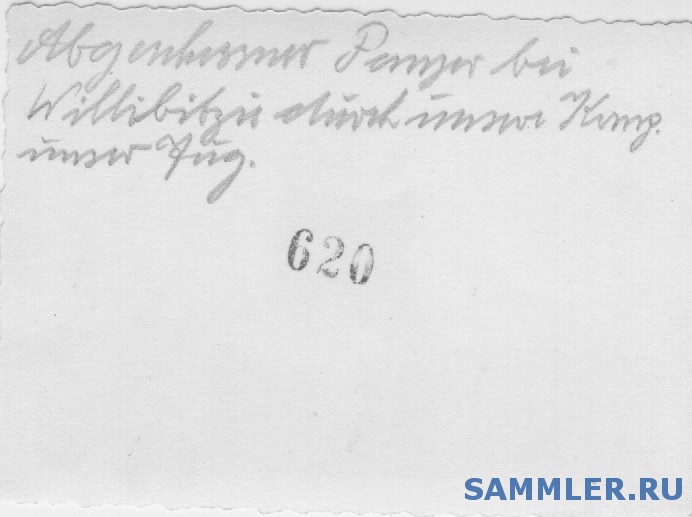 Panzer bei
durch unsere Komp.
unser Zug.
620
SAMMLER.RU